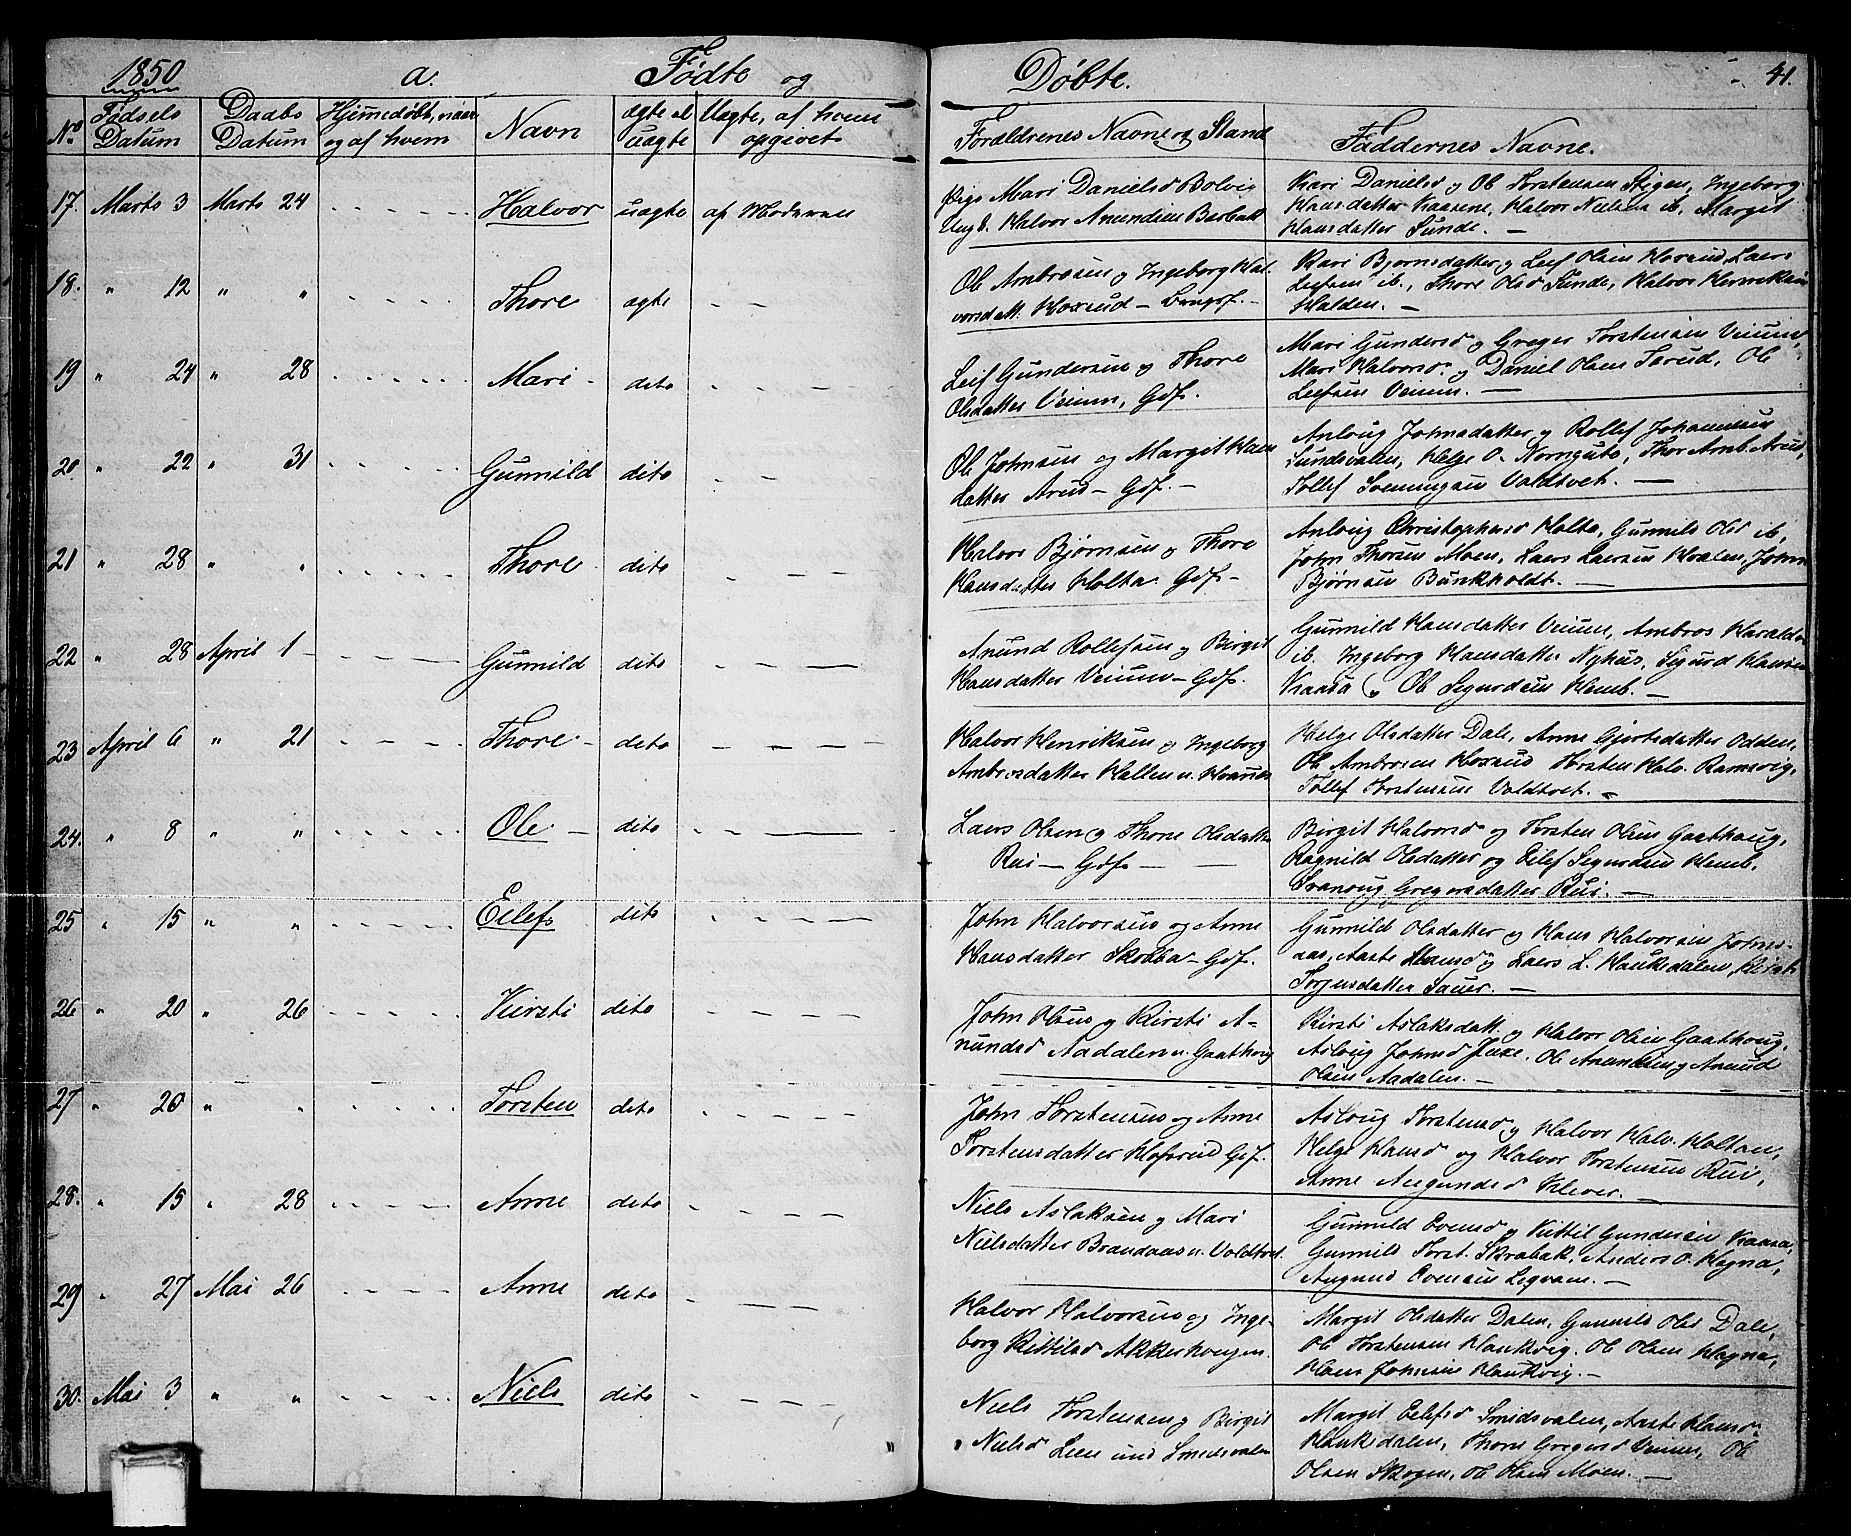 1850 a. Fødte og Døbte. 41.
No Fødsels Datum Daabs Datum Hjemmedøbt, naar og af hvem Navn ægte el uægte Uægte, af hvem opgivet Forældrenes Navne og Stand Faddernes Navne.
17. Marts 3 Marts 24 Halvor uægte af Moderen
Pige Mari Danielsd Bolvig
Ungk. Halvor Anundsen
Kari Danielsd og Ole Torstensen Stigen, Ingeborg
Hansdatter Kaasene, Halvor Nielsen ib. Margit
Hansdatter Sunde. —
18. " 12 " " Thore ægte
Ole Ambrosen og Ingeborg Hal-
vorsdatt. Hoxrud —
Kari Bjørnsdatter og Leif Olsen Hoxrud, Laers
Leifsen ib., Thore Olsd Sunde, Halvor Henriksen
Halden. —
19 " 24 " 28 Mari dito
Leif Gundersen og Thore
Olsdatter Veium, Gdf.
Mari Gundersd og Greger Torstensen Veium,
Mari Halvorsd og Daniel Olsen Farud, Ole
Leifsen Veium. —
20. " 22 " 31 Gunnild dito
Ole Johnsen og Margit Hans
datter Arud — Gdf. —
Anloug Johnsdatter og Rollef Johannesen
Sundsvalen, Helge O. Norngute, Thor Amb. Arud,
Tollef Svenningsen Voldtvet. —
21 " 28 " " Thore dito
Halvor Bjørnsen og Thore
Hansdatter Holta Gdf —
Anloug Christophersd Holta, Gunnild Olsd ib,
John Thorsen Moen, Laers Laersen Hvalen, John
Bjørnsen Bunkholdt. —
22 " 28 April 1 Gunnild dito
Anund Rollefsen og Birgit
Hansdatter Veium — Gdf.
Gunnild Hansdatter Veium, Ambros Haralds
ib. Ingeborg Hansdatter Nyhus, Sigurd Hansen
Kaasa og Ole Sigurdsen Hemb. —
23 April 6 " 21 Thore dito
Halvor Henriksen og Ingeborg
Ambrosdatter Hallen u.
Helge Olsdatter Dale, Anne Gjertsdatter Odden,
Ole Ambrosen Hoxrud Torsten Halv. Ramsvig,
Tollef Torstensen Voldtvet. —
24. " 8 " " Ole dito
Laers Olsen og Thone Olsdatter
Rui — Gdf —
Birgit Halvorsd og Torsten Olsen Gaathaug,
Ragnild Olsdatter og Eilef Sigurdsen Hemb,
Svanoug Gregersdatter Rui. —
25 " 15 " " Eilef dito
John Halvorsen og Anne
Hansdatter Skoba — Gdf.
Gunnild Olsdatter og Hans Halvorsen Johns-
aas, Aaste Hansd og Laers L. Haukedalen,
Torjusdatter Sauer. —
26 " 20 " 26 Kirsti dito
John Olsen og Kirsti A-
nundsd Aadalen u. Gaathoug
Kirsti Aslaksdatt. og Halvor Olsen Gaathoug,
Asloug Johnsd Juxe. Ole Anundsen og Anund
Olsen Aadalen. —
27 " 20 " " Torsten dito
John Torstensen og Anne
Torstensdatter Hofsrud Gdf.
Asloug Torstensd og Halvor Halv. Holtan,
Helge Hansd og Halvor Torstensen Rui,
Anne Augundsd Klever. —
28. " 15 " 28 Anne dito
Niels Aslaksen og Mari
Nielsdatter Brandaas u. Voldtvet.
Gunnild Evensd og Kittil Gundersen Kaasa,
Gunnild Torst. Skrabak, Anders O. Hegna,
Augund Evensen Legvam. —
29 " 27 Mai 26 Anne dito
Halvor Halvorsen og Inge-
borg Kittilsd Akkerhougen.
Margit Olsdatter Dalen, Gunnild Olsd Dale,
Ole Torstensen Haukvig. Ole Olsen Hegna,
Hans Johnsen Haukvig. —
30. Mai 3 " " Niels dito
Niels Torstensen og Birgit
Nielsd Lien und Smedsvalen
Margit Eilefsd Smedsvalen, Aaste Hansd
Haukedalen, Thone Gregersd Veium, Ole
Olsen Skogen, Ole Olsen Moen. —